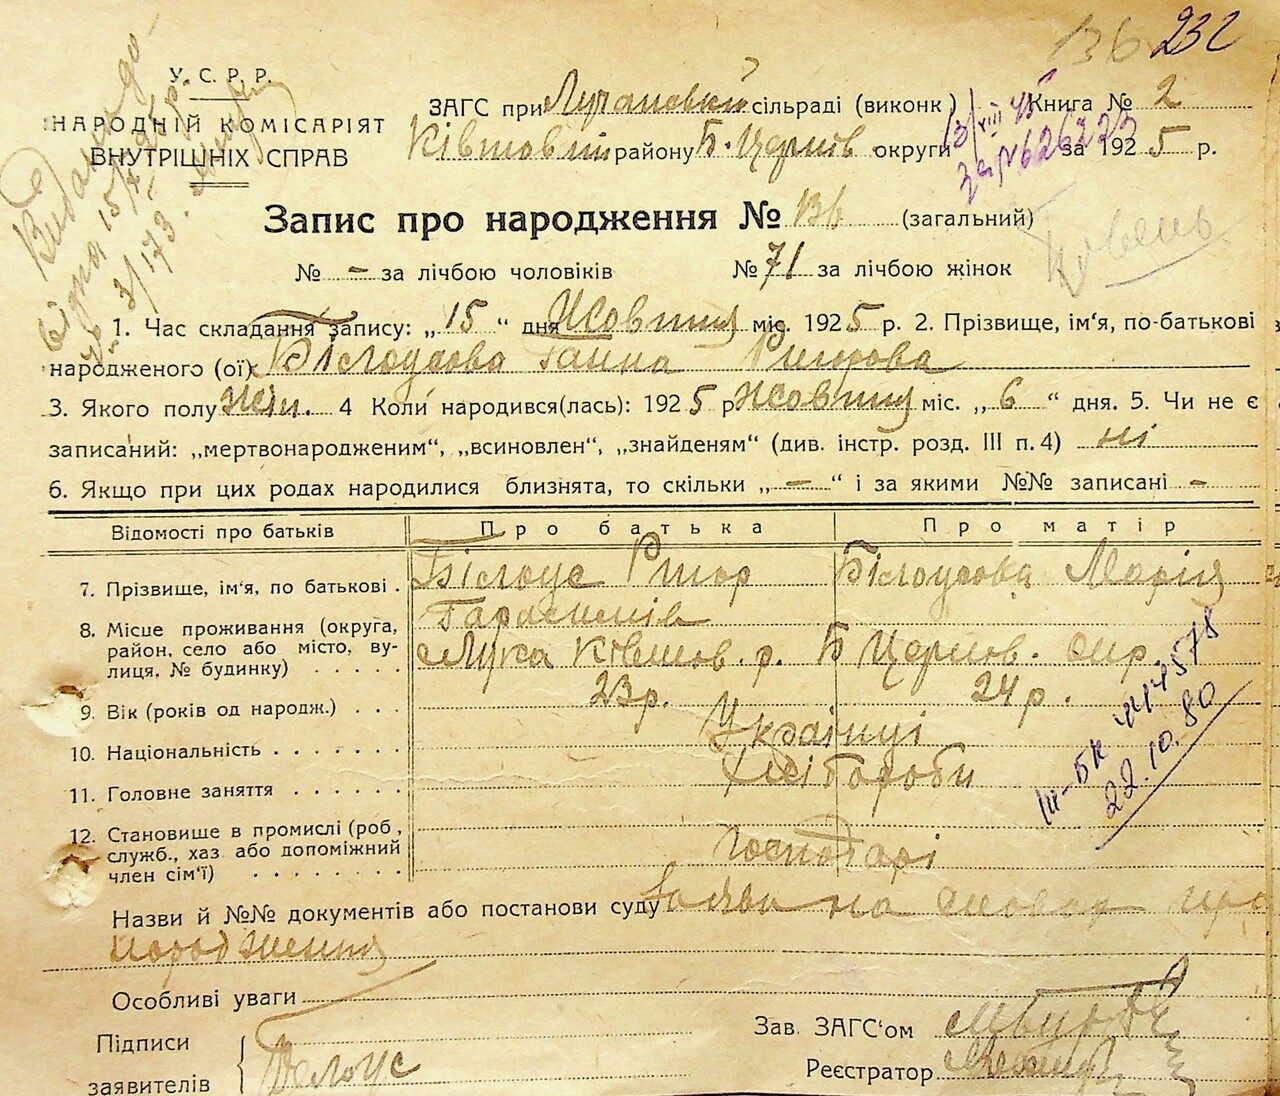 136 232
У. С. Р. Р.
НАРОДНІЙ КОМІСАРІЯТ
ВНУТРІШНІХ СПРАВ
ЗАГС при сільраді (виконк) Книга № 2
району Б. Церков округи за 1925 р.
13/XIII 45
Запис про народження № 136 (загальний)
№ – за лічбою чоловіків № 71 за лічбою жінок
1. Час складання запису: „15“ дня Жовтня міс. 1925 р. 2. Прізвище, ім'я, по-батькові
народженого (ої) Білоусова Ганна Ригорова
3. Якого полу жін. 4 Коли народився(лась): 1925 р Жовтня міс. „6“ дня. 5. Чи не є
записаний: „мертвонародженим“, „всиновлен“, „знайденям“ (див. інстр. розд. III п. 4) ні
6. Якщо при цих родах народилися близнята, то скільки „–“ і за якими №№ записані –
Відомості про батьків Про батька Про матір
7. Прізвище, ім'я, по батькові . Білоус Ригор Білоусова Марія
Гарасимів
8. Місце проживання (округа,
район, село або місто, ву-
лиця, № будинку) . . . . . Лука р. Б Церков. окр
9. Вік (років од народж.) . . . 23р. 24 р.
10. Національність . . . . . . . Українці
11. Головне заняття . . . . . . Хлібороби
12. Становище в промислі (роб,
служб., хаз або допоміжний
член сім'ї) . . . . . . . . Господарі
III-БК 4144578
22.10.80
Назви й №№ документів або постанови суду Заява на словах про
народження
Особливі уваги
Підписи
заявителів Белоус
Зав. ЗАГС'ом
Реєстратор